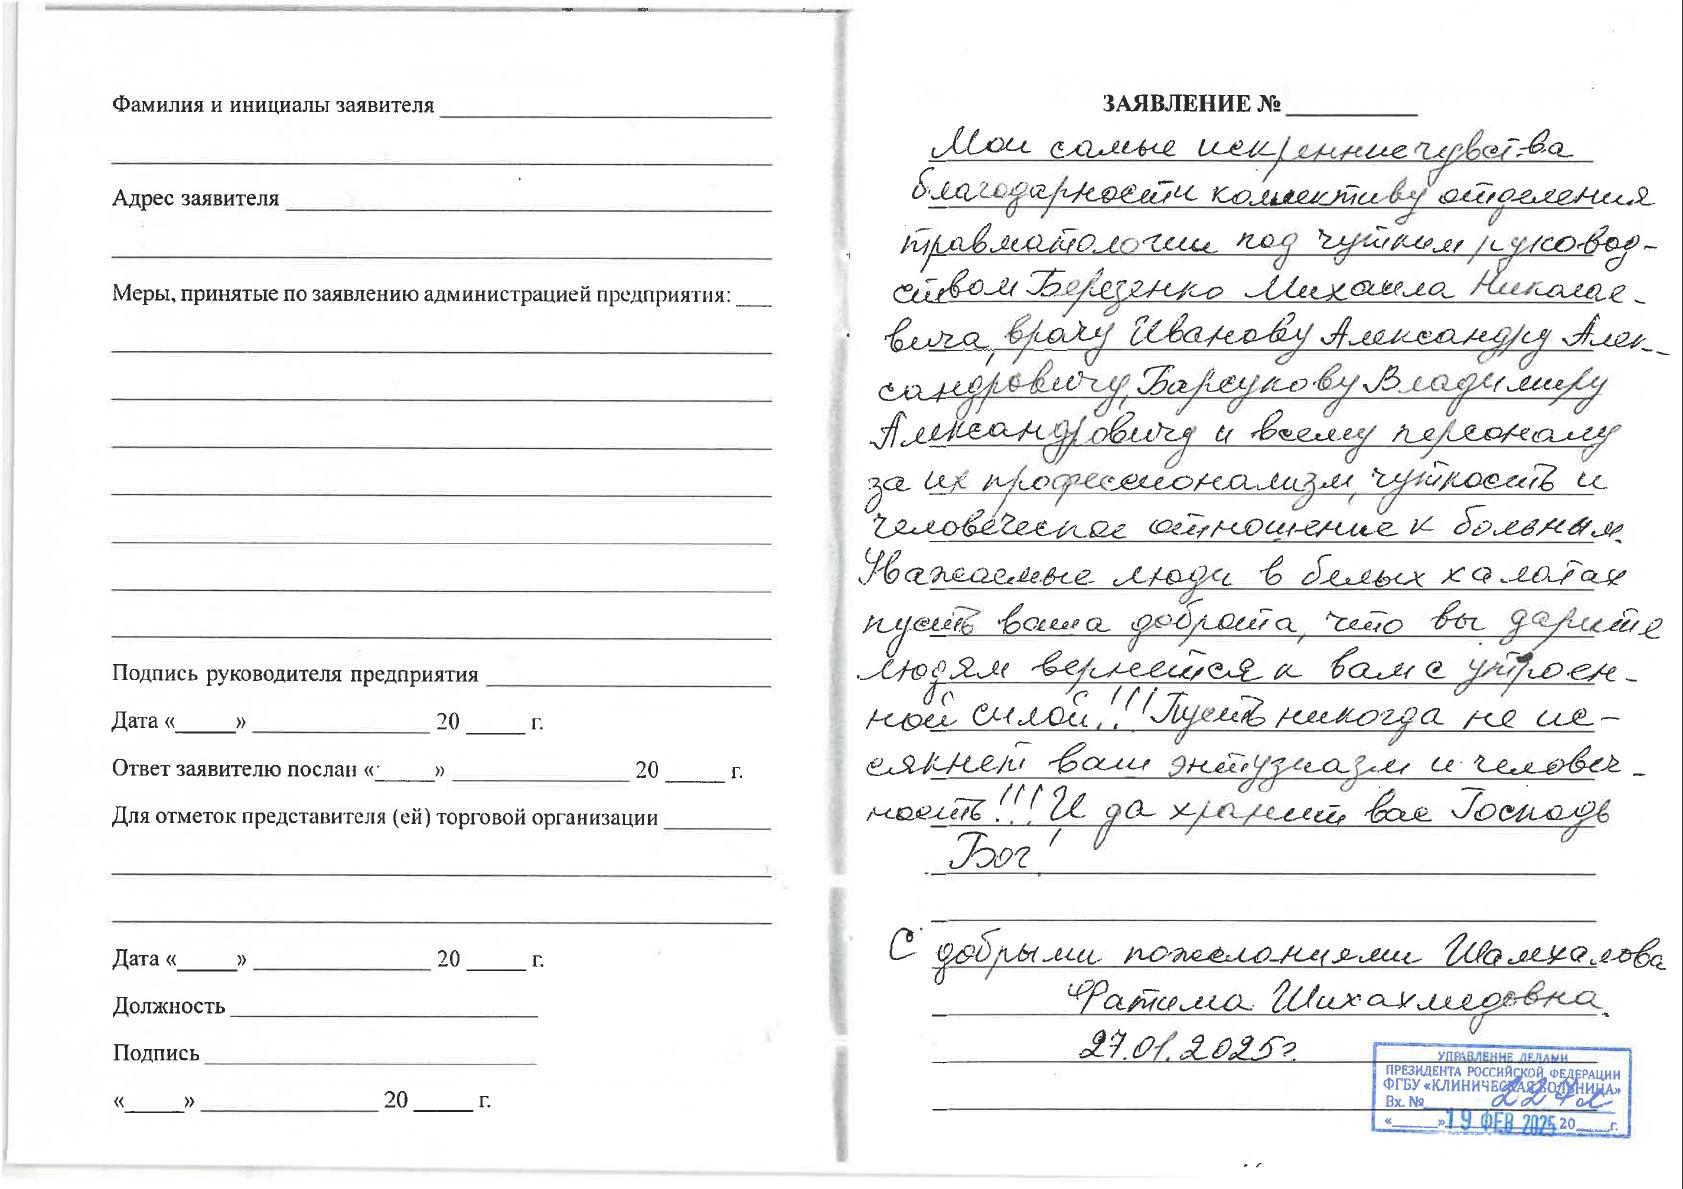 Фамилия и инициалы заявителя
Адрес заявителя
Меры, принятые по заявлению администрацией предприятия:
Подпись руководителя предприятия
Дата «_____» _______________ 20 _____ г.
Ответ заявителю послан «_____» _______________ 20 _____ г.
Для отметок представителя (ей) торговой организации
Дата «_____» _______________ 20 _____ г.
Должность
Подпись
«_____» _______________ 20 _____ г.
ЗАЯВЛЕНИЕ №
Мои самые искренние чувства
благодарности коллективу отделения
травматологии под чутким руковод-
ством Березенко Михаила Николае-
вича, врачу Иванову Александру Алек-
сандровичу, Барсукову Владимиру
Александровичу и всему персоналу
за их профессионализм, чуткость и
человеческое отношение к больным.
Уважаемые люди в белых халатах
пусть ваша доброта, что вы дарите
людям вернется к вам с утроен-
ной силой!!! Пусть никогда не ис-
сякнет ваш энтузиазм и человеч-
ность!!! И да хранит вас Господь
Бог!
С добрыми пожеланиями Шамхалова
Фатима Шихахмедовна.
27.01.2025г.
УПРАВЛЕНИЕ ДЕЛАМИ
ПРЕЗИДЕНТА РОССИЙСКОЙ ФЕДЕРАЦИИ
ФГБУ «КЛИНИЧЕСКАЯ БОЛЬНИЦА»
Вх. №
«_____» 19 ФЕВ 2025 20____г.